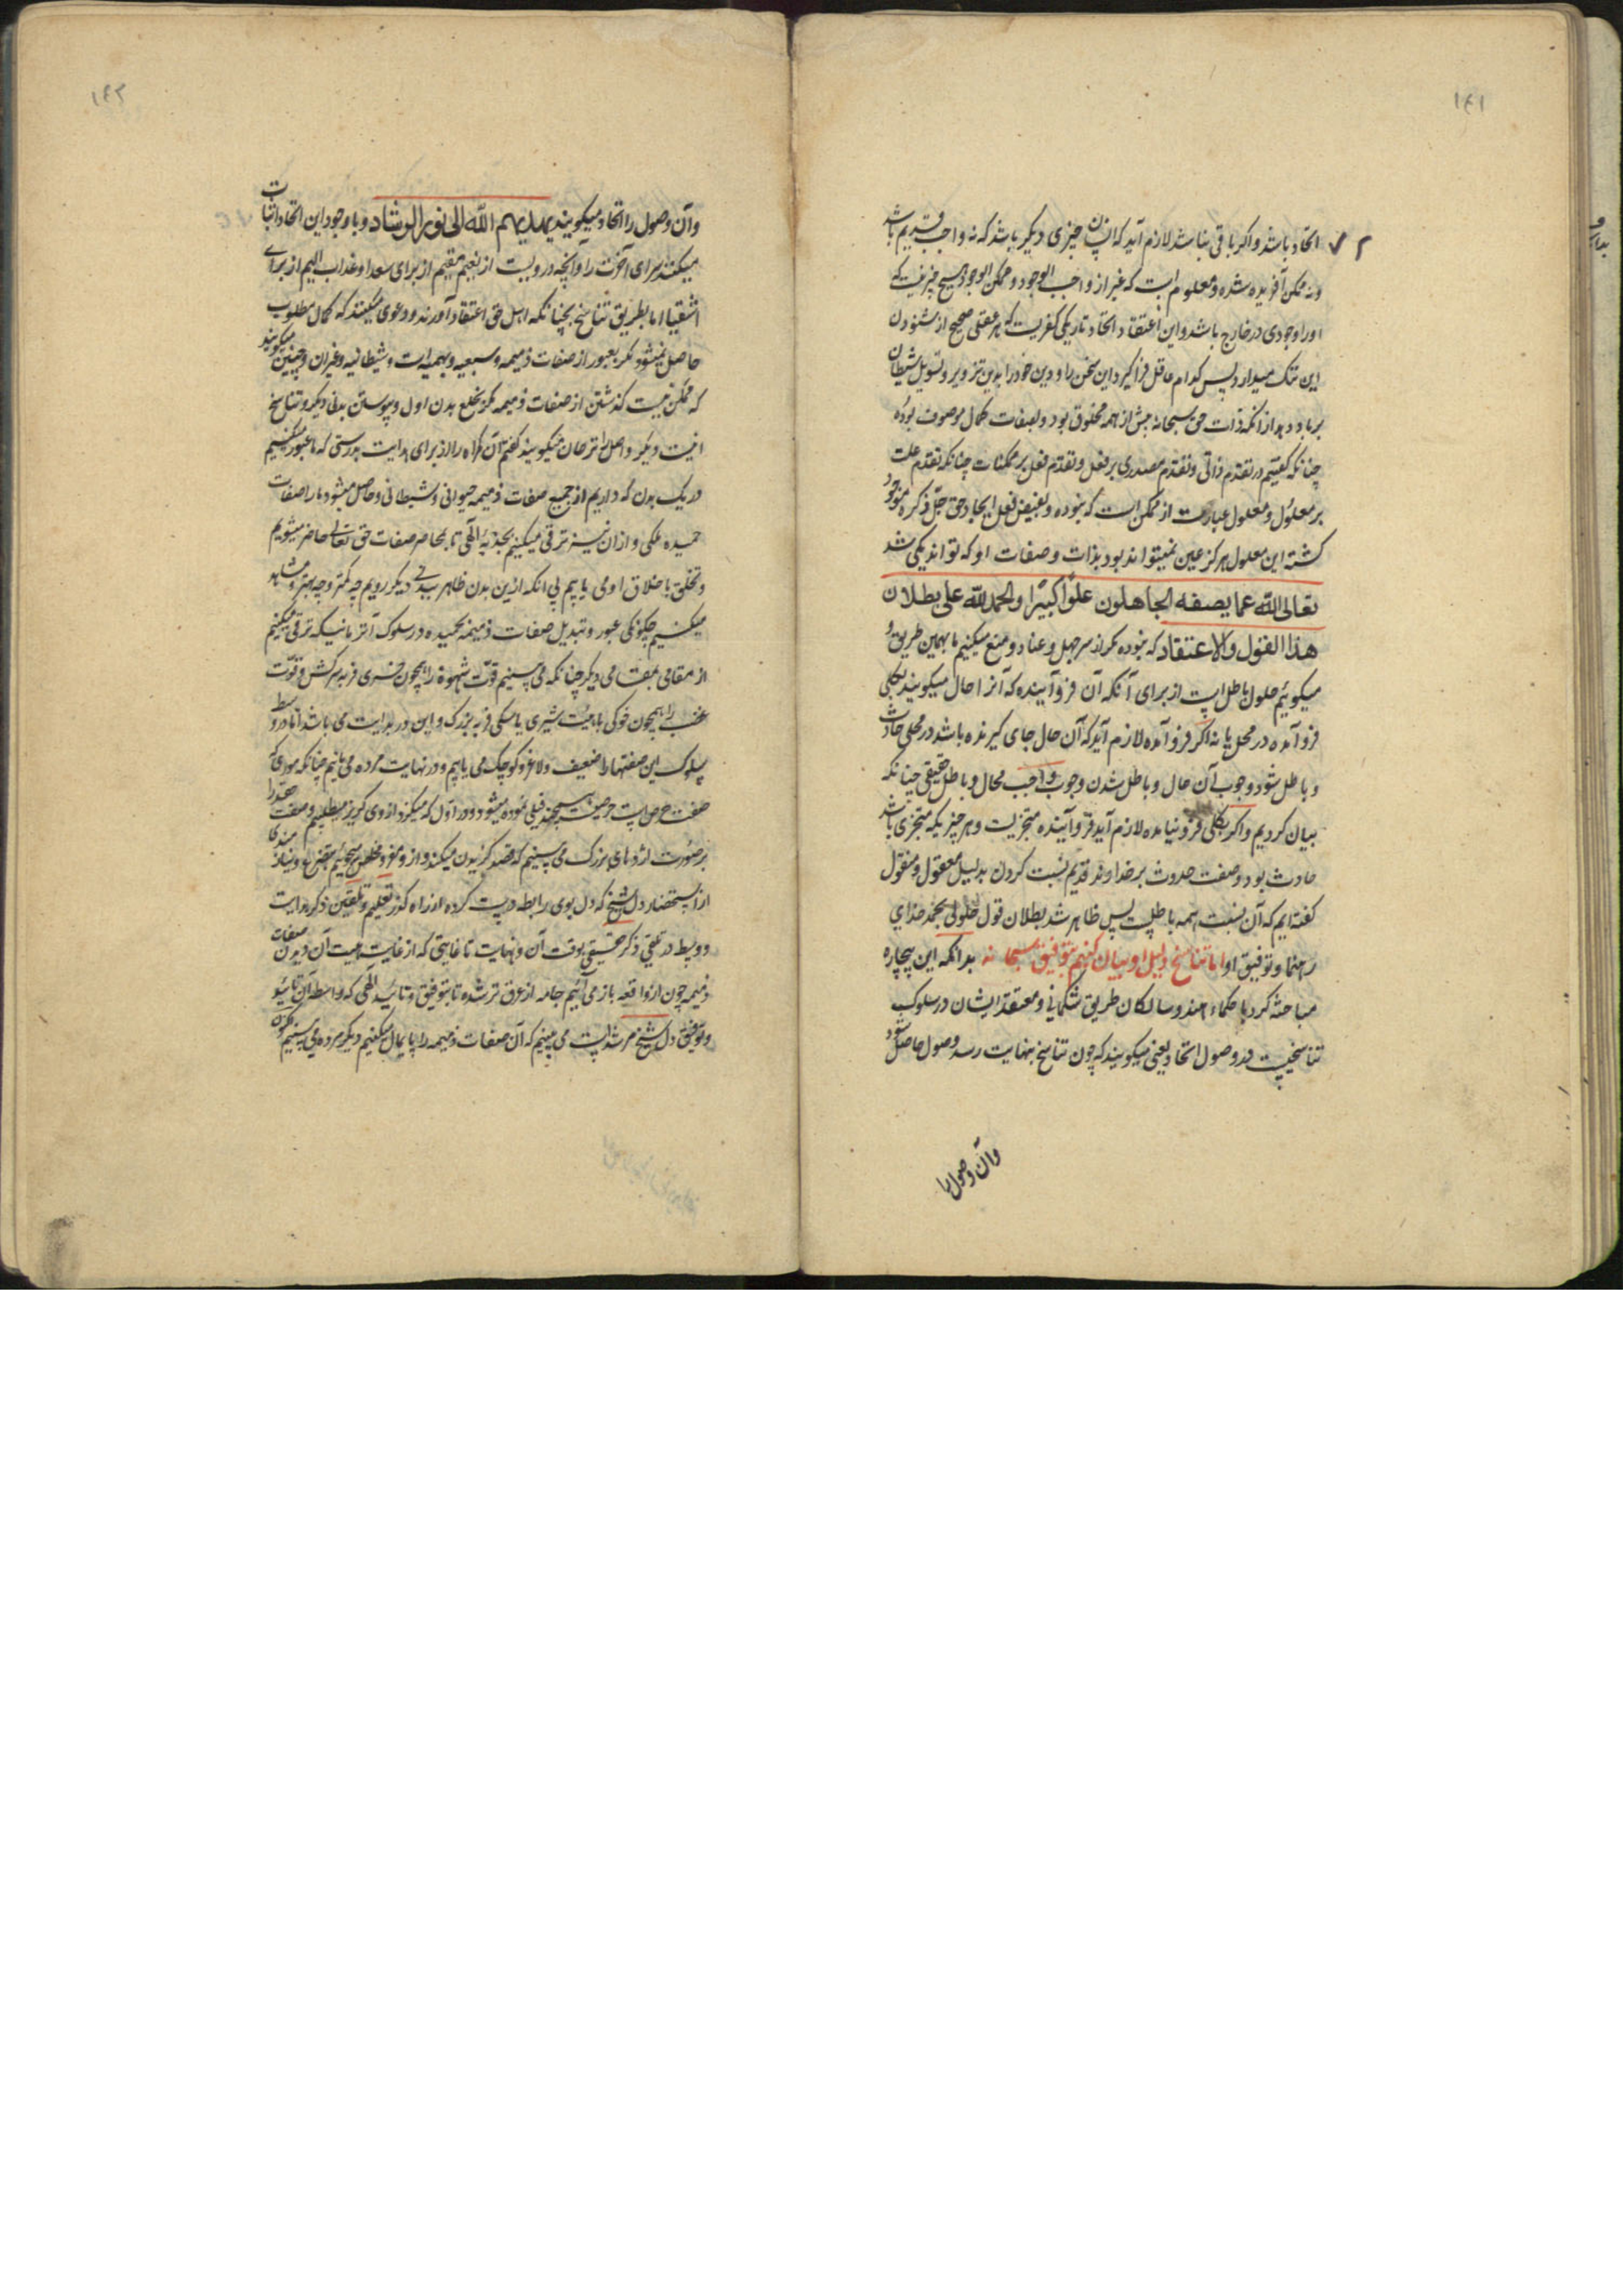 ۱۴۱
اتحاد باشد و اگر باقی نباشد لازم آید که انسان چیزی دیگر باشد که نه واجب قدیم باشد
ونه ممکن آفریده شده و معلوم است که غیر از واجب الوجود و ممکن الوجود هیچ چیز نیست که
اورا وجودی در خارج باشد و این اعتقاد اتحاد تاریکی کفریست که هر عقلی صحیح از شنودن
این ننگ میدارد پس کدام عاقل فراگیرد این سخن را و دین خود را بدین تزویر و تسویل شیطان
برباد دهد از انکه ذات حق سبحانه پیش از همه مخلوق بود و بصفات کمال موصوف بوده
چنانکه گفتیم در تقدم ذاتی و تقدم مصدری بر فعل و تقدم فعل بر ممکنات چنانکه تقدم علت
بر معلول و معلول عبارت از ممکن است که نبوده و بفیض فعل ایجاد حق جل ذکره موجود
گشته این معلول هرگز عین نمیتواند بود بذات و صفات او که تواند یکی شد
تعالی الله عما یصفه الجاهلون علوا کبیرا والحمد لله علی بطلان
هذا القول والاعتقاد که نبوده مگر از سر جهل و عناد و منع میکنیم ما بهمین طریق و
میگوئیم حلول باطل است از برای آنکه آن فروآینده که آنرا حال میگویند بکلی
فروآمده در محل یا نه اگر فروآمده لازم آید که آن حال جای گیرنده باشد در محلی حادث
و باطل شود وجوب آن حال و باطل شدن وجوب واجب محال و باطل حقیقی چنانکه
بیان کردیم و اگر بکلی فرونیامده لازم آید فروآینده متجزیست و هر چیزیکه متجزی باشد
حادث بود و صفت حدوث بر خداوند قدیم نسبت کردن بدلیل معقول و منقول
گفته ایم که آن نسبت همه باطلست پس ظاهر شد بطلان قول حلولی بحمد خدای
رهنما و توفیق او اما تناسخ دلیل او بیان کنم بتوفیق سبحانه بدانکه این بیچاره
مباحثه کرد با حکماء هند و سالکان طریق شکمانی و معتقد ایشان در سلوک
تناسخیست و در وصول اتحاد یعنی میگویند که چون تناسخ بنهایت رسد وصول حاصل شود
وآن وصول را
۱۴۲
وآن وصول را اتحاد میگویند یهدیهم الله الی نور الرشاد و با وجود این اتحاد اثبات
میکنند سرای آخرت را و آنچه دروست از نعیم مقیم از برای سعدا و عذاب الیم از برای
اشقیا اما بطریق تناسخ نچنانکه اهل حق اعتقاد آورند و دعوی میکنند که کمال مطلوب
حاصل نمیشود مگر بعبور از صفات ذمیمه و سبعیه و بهیمیه است و شیطانیه و غیران و چنین میگویند
که ممکن نیست گذشتن از صفات ذمیمه مگر بخلع بدن اول و پیوستن بدنی دیگر و تناسخ
اینست دیگر و اصل را ترحان میگویند گفتم آن گمراه را از برای هدایت بدرستی که ما عبور میکنیم
در یک بدن که داریم از جمیع صفات ذمیمه حیوانی و شیطانی و حاصل میشود ما را صفات
حمیده ملکی و از ان نیز ترقی میکنیم بجذبهٔ الهی تا بمحاضر صفات حق تعالی حاضر میشویم
و تخلق باخلاق او می یابیم بی انکه ازین بدن ظاهر ببدنی دیگر رویم چه کمتر و چه بهتر و مشاهده
میکنیم چگونگی عبور و تبدیل صفات ذمیمه بحمیده در سلوک آنزمانیکه ترقی میکنیم
از مقامی بمقامی دیگر چنانکه می بینیم قوت شهوة را همچون خری فربه سرکش و قوت
غضب را همچون خوکی با هیئت شیری یا سگی فربه بزرگ و این در بدایت می باشد اما در وسط
سلوک این صفتها را ضعیف و لاغر و کوچک می یابیم و در نهایت مرده می یابیم چنانکه موری که
صفت حرص است همچند فیلی نموده میشود و در اول که میگزد از وی گریز میطلبیم و صفت حقد را
بر صورت اژدهای بزرگ می بینیم که قصد گزیدن میکند و از و مفر و مخلص میجوئیم بتضرع و نیازمندی
از استحضار دل شیخ که دل بوی رابطه درست کرده از راه گذر تعلیم و تلقین ذکر بدایت
و وسط در تلقی ذکر حقیقی بوقت آن و نهایت تا غایتی که از غایت هیبت آن دیدن صفات
ذمیمه چون از واقعه باز می آئیم جامه از عرق تر شده تا بتوفیق و تائید الهی که واسطهٔ آن تائید
و توفیق دل شیخ مرشد است می بینیم که آن صفات ذمیمه را پایمال میکنیم دیگر مرده می بینیم